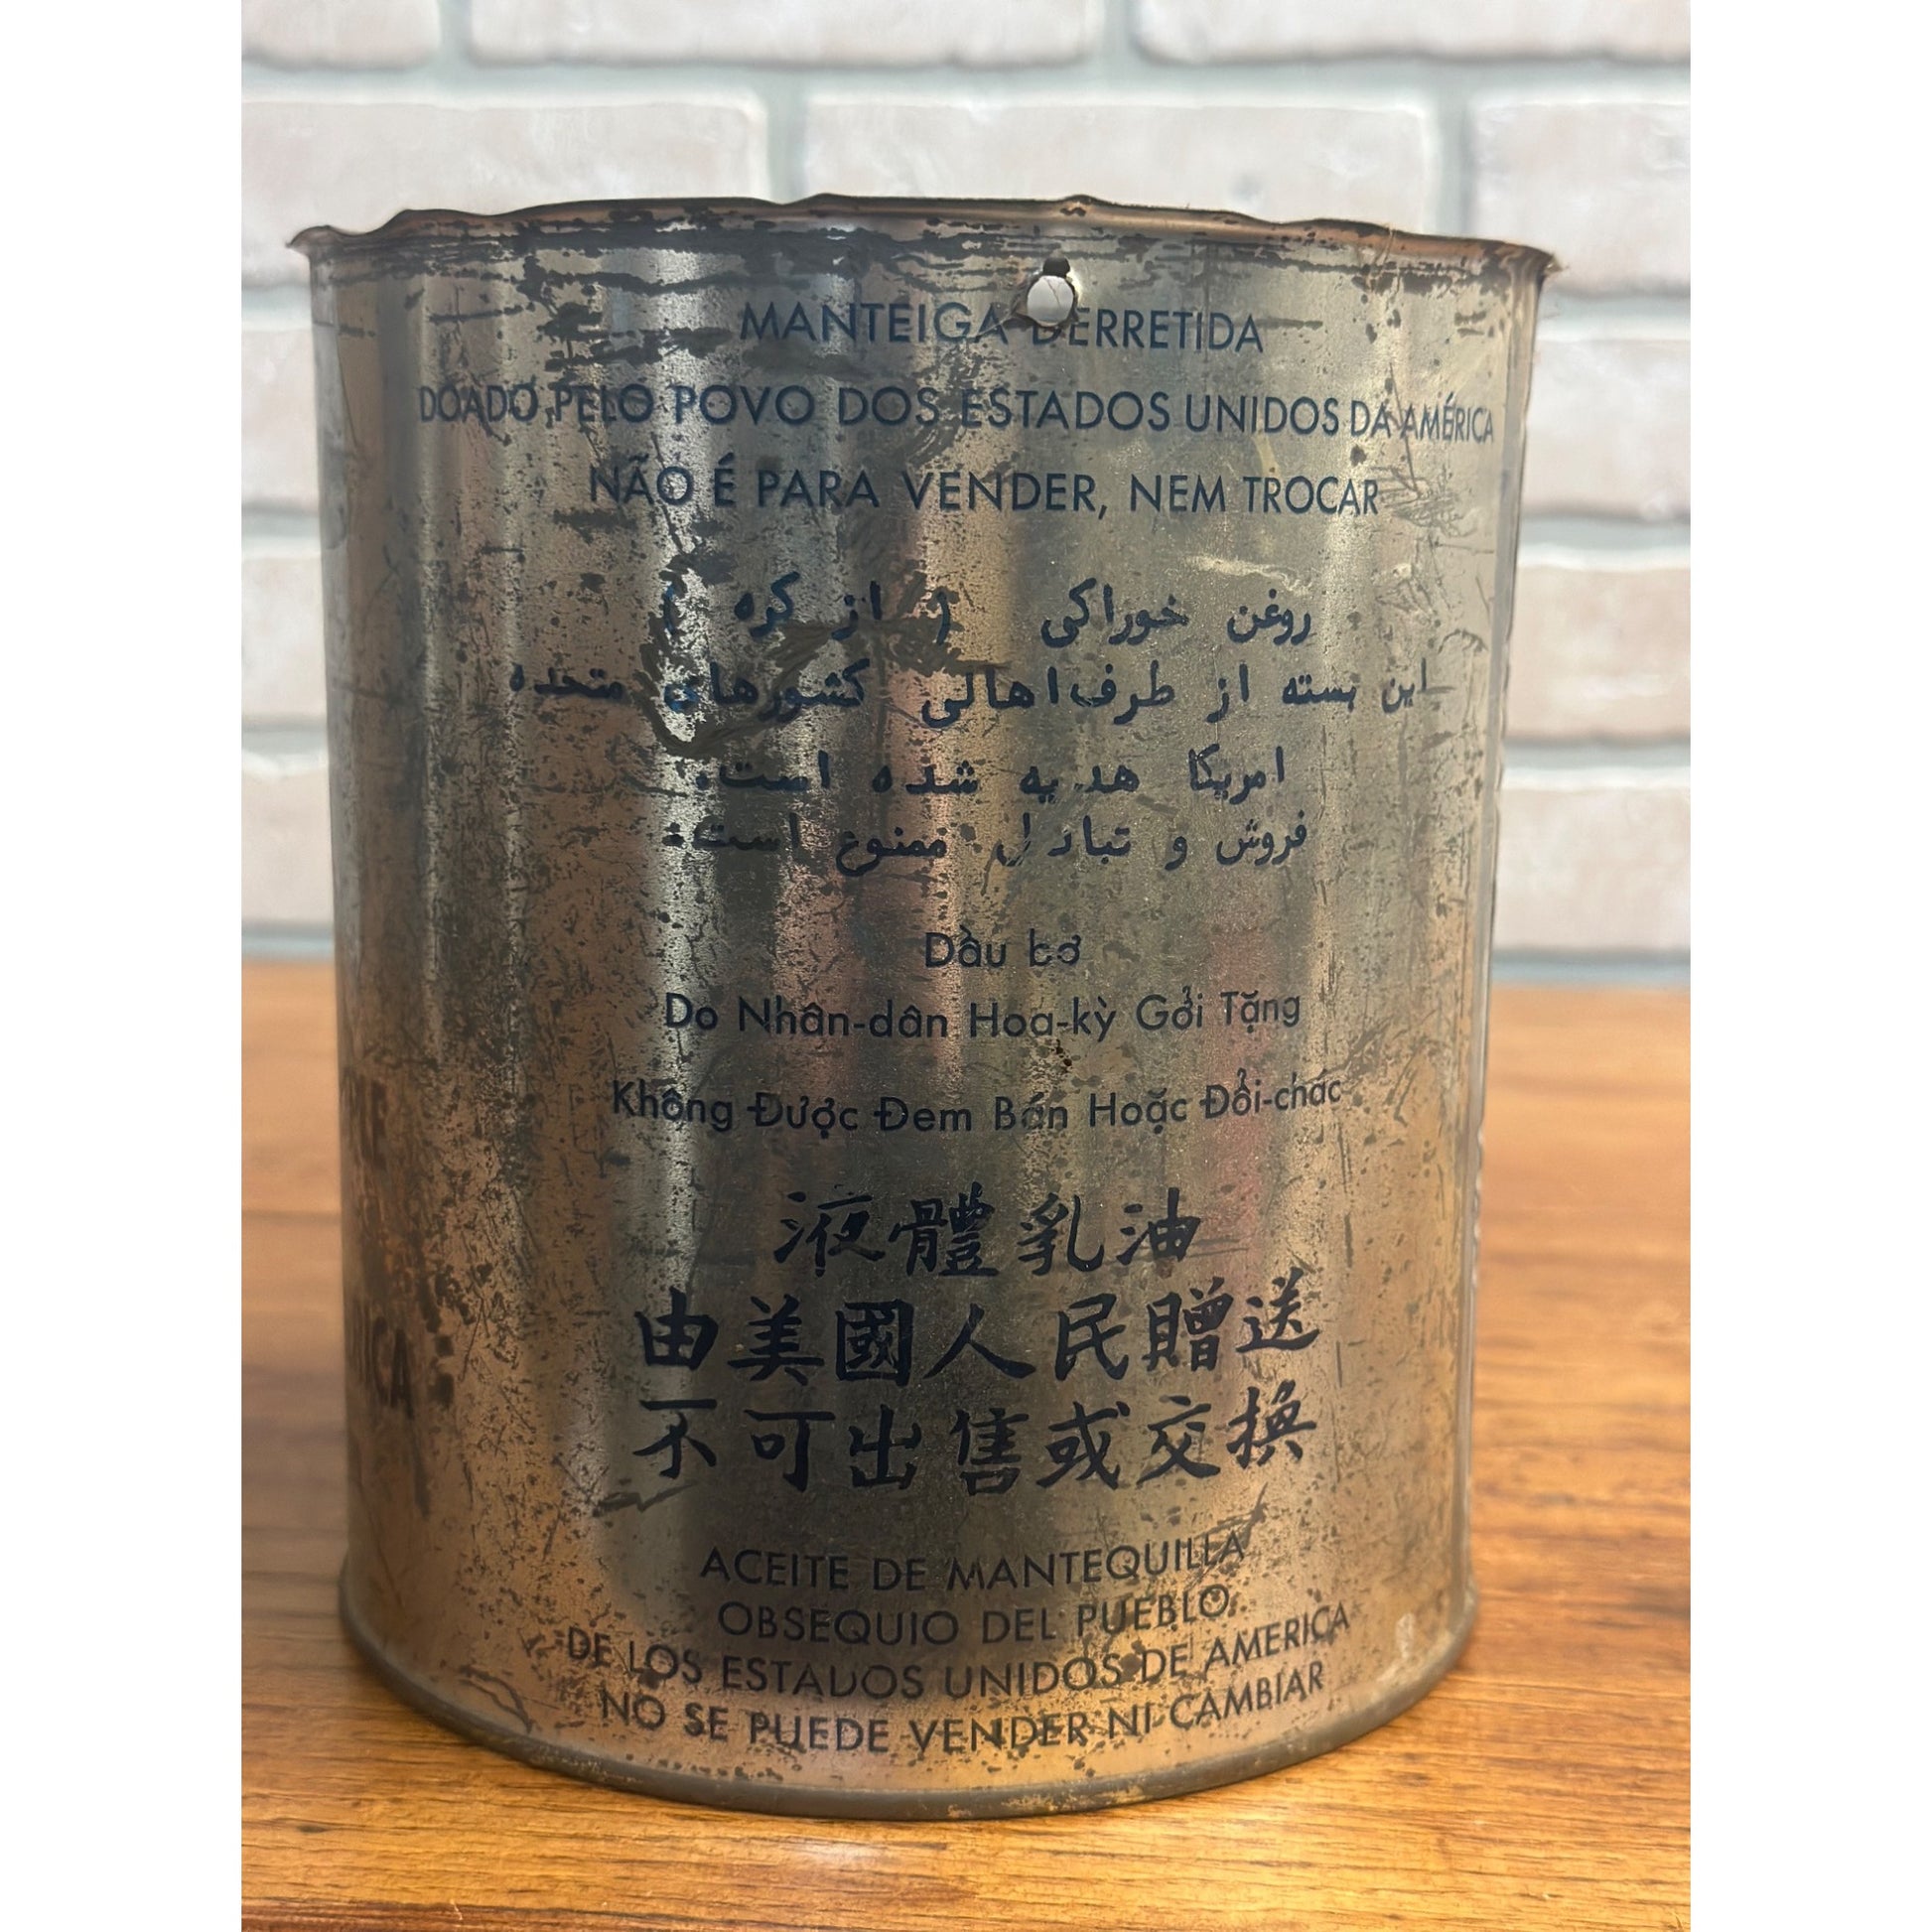 MANTEIGA DERRETIDA
DOADO PELO POVO DOS ESTADOS UNIDOS DA AMÉRICA
NÃO É PARA VENDER, NEM TROCAR
روغن خوراکی ( از کره )
این بسته از طرف اهالی کشورهای متحده
امریکا هدیه شده است.
فروش و تبادل ممنوع است.
Dầu bơ
Do Nhân-dân Hoa-kỳ Gởi Tặng
Không Được Đem Bán Hoặc Đổi-chác
液體乳油
由美國人民贈送
不可出售或交換
ACEITE DE MANTEQUILLA
OBSEQUIO DEL PUEBLO
DE LOS ESTADOS UNIDOS DE AMERICA
NO SE PUEDE VENDER NI CAMBIAR